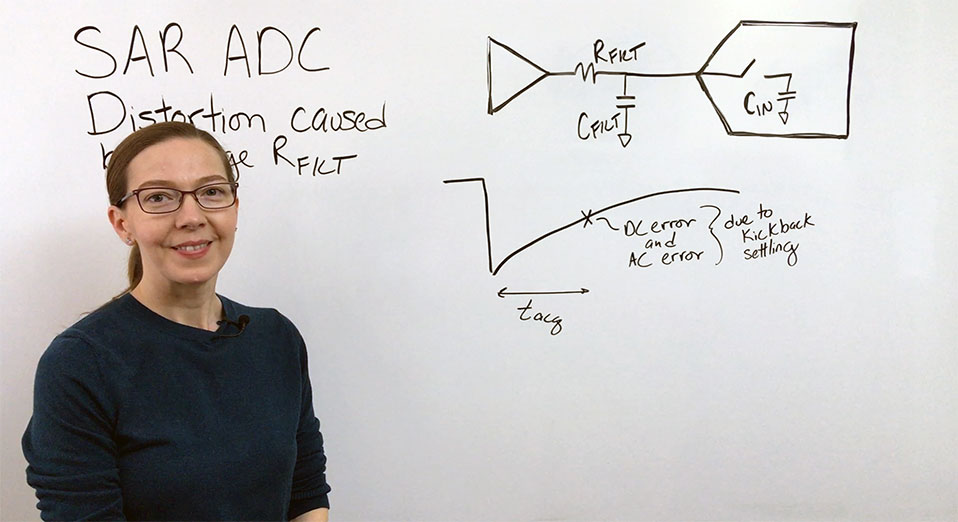 SAR ADC
Distortion caused
RFILT
RFILT
CFILT
CIN
DC error
and
AC error
due to
kickback
settling
tacq